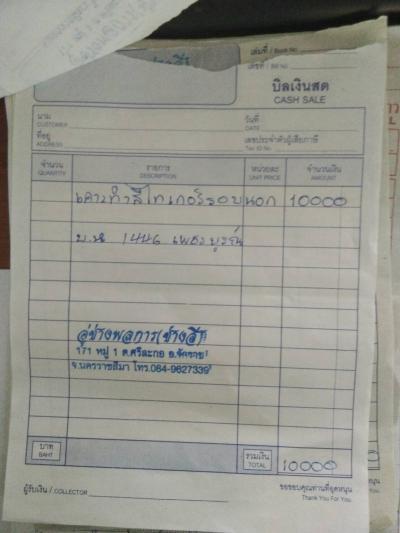 เล่มที่ / Book No.
เลขที่ / Bill No.
บิลเงินสด
CASH SALE
นาม
CUSTOMER
วันที่
DATE
ที่อยู่
ADDRESS
เลขประจำตัวผู้เสียภาษี
Tax ID No.
จำนวน
QUANTITY
รายการ
DESCRIPTION
หน่วยละ
UNIT PRICE
จำนวนเงิน
AMOUNT
เคาะทำสีไทเกอร์รอบนอก 10000
บ.น 1446 เพชรบูรณ์
อู่ช่างพลการ(ช่างลี)
171 หมู่ 1 ต.ศรีละกอ อ.จักราช
จ.นครราชสีมา โทร.064-9827339
บาท
BAHT
รวมเงิน
TOTAL
10000
ผู้รับเงิน / COLLECTOR
ขอขอบคุณท่านที่อุดหนุน
Thank You For You